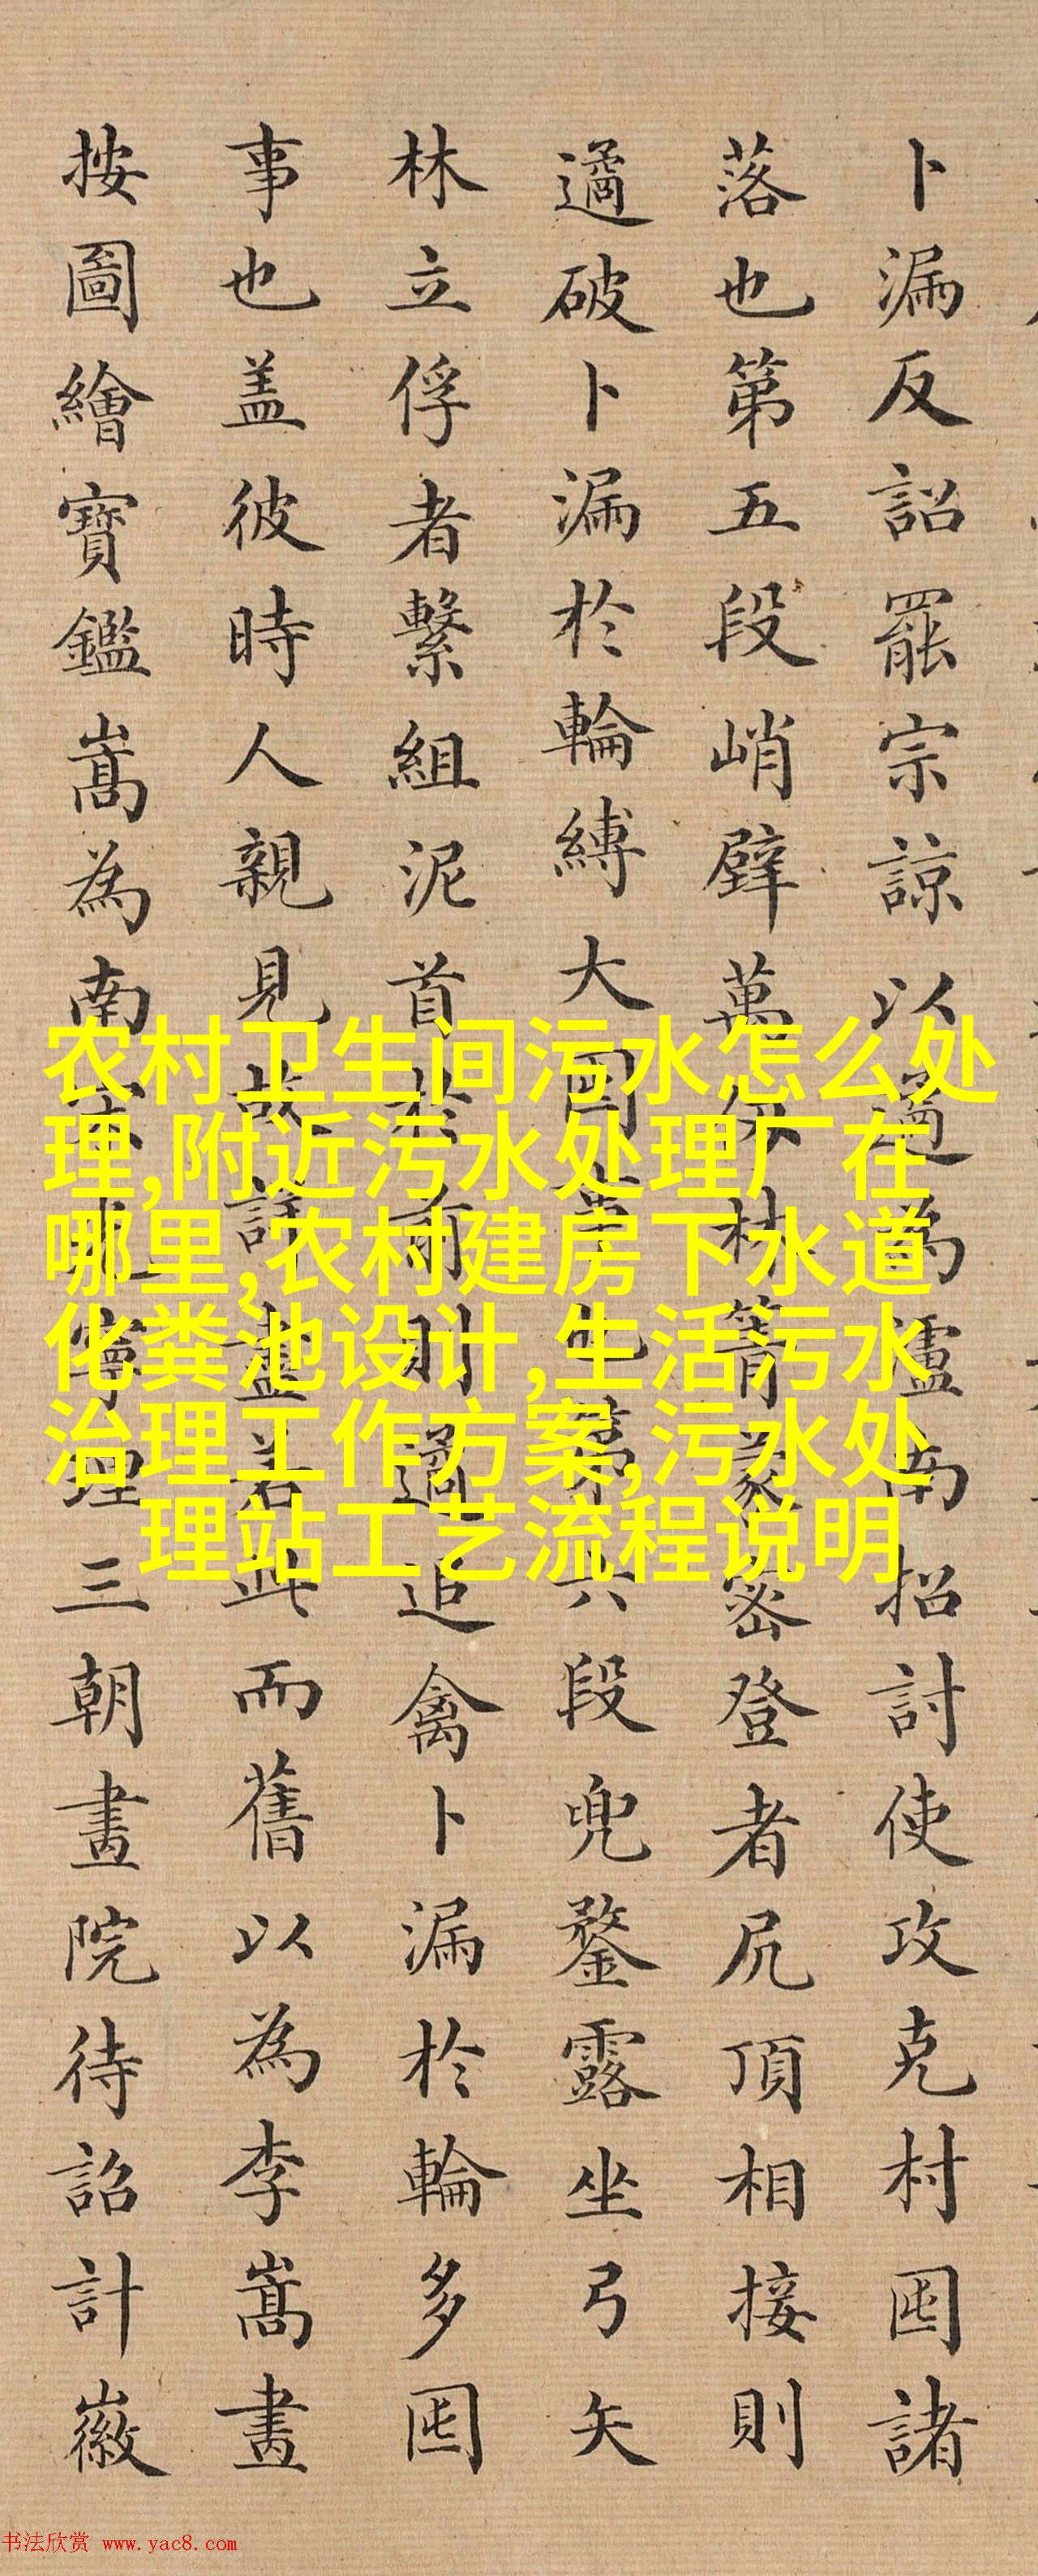 卜漏反詔罷宗諒以遹為瀘南招討使攻克村囤諸
落也第五段峭壁萬仞林箐蒙密登者尻頂相接則
遹破卜漏於輪縛大囤事也第六段兜鍪露坐弓矢
林立俘者繫組泥首於前則遹追禽卜漏於輪多囤
事也盖彼時人親見故詳盡若此而舊以為李嵩畫
按圖繪寶鑑嵩為南宋光寧理三朝畫院待詔計徽
农村卫生间污水怎么处
理,附近污水处理厂在
哪里,农村建房下水道
化粪池设计,生活污水
治理工作方案,污水处
理站工艺流程说明
书法欣赏 www.yac8.com